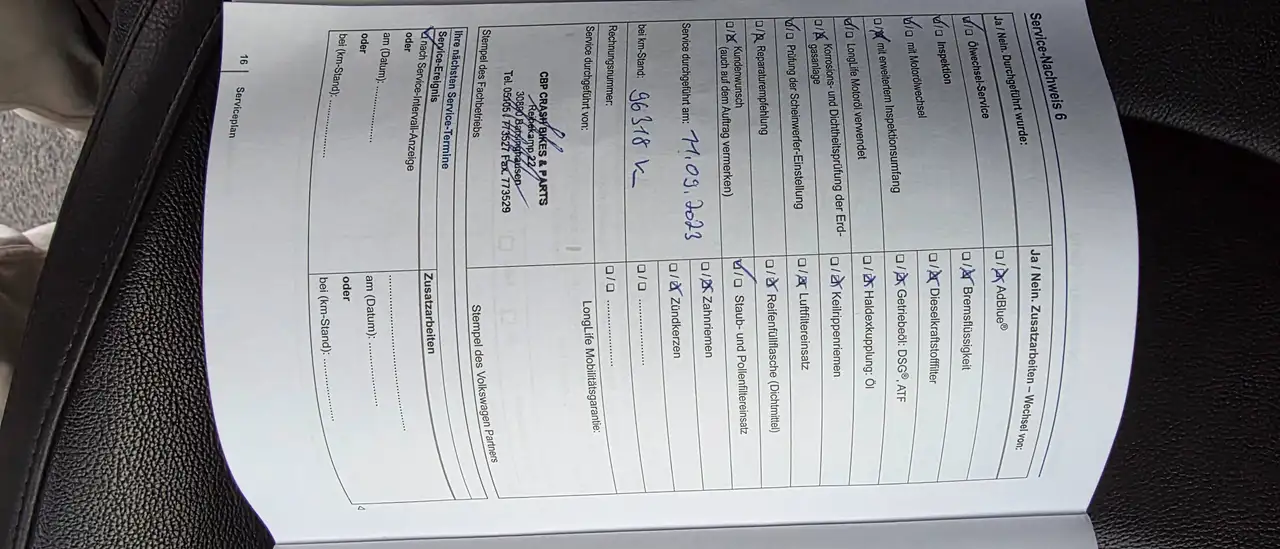 Service-Nachweis 6
Ja / Nein. Durchgeführt wurde:
☑/☐ Ölwechsel-Service
☑/☐ Inspektion
☑/☐ mit Motorölwechsel
☐/☒ mit erweitertem Inspektionsumfang
☑/☐ LongLife Motoröl verwendet
☐/☒ Korrosions- und Dichtheitsprüfung der Erd-
gasanlage
☑/☐ Prüfung der Scheinwerfer-Einstellung
☐/☒ Reparaturempfehlung
☐/☒ Kundenwunsch
(auch auf dem Auftrag vermerken)
Service durchgeführt am: 11.09.2023
bei km-Stand: 96318 K
Rechnungsnummer:
Service durchgeführt von:
CBP CRASH BIKES & PARTS
Tel. 05105 / 773527 Fax. 773529
Stempel des Fachbetriebs
Ja / Nein. Zusatzarbeiten – Wechsel von:
☐/☒ AdBlue®
☐/☒ Bremsflüssigkeit
☐/☒ Dieselkraftstofffilter
☐/☒ Getriebeöl: DSG®, ATF
☐/☒ Haldexkupplung: Öl
☐/☒ Keilrippenriemen
☐/☒ Luftfiltereinsatz
☐/☒ Reifenfüllflasche (Dichtmittel)
☑/☐ Staub- und Pollenfiltereinsatz
☐/☒ Zahnriemen
☐/☒ Zündkerzen
☐/☐ ................
☐/☐ ................
LongLife Mobilitätsgarantie:
Stempel des Volkswagen Partners
Ihre nächsten Service-Termine
Service-Ereignis
☑ nach Service-Intervall-Anzeige
oder
am (Datum): ................
oder
bei (km-Stand): ................
Zusatzarbeiten
................................
am (Datum): ................
oder
bei (km-Stand): ................
16 | Serviceplan